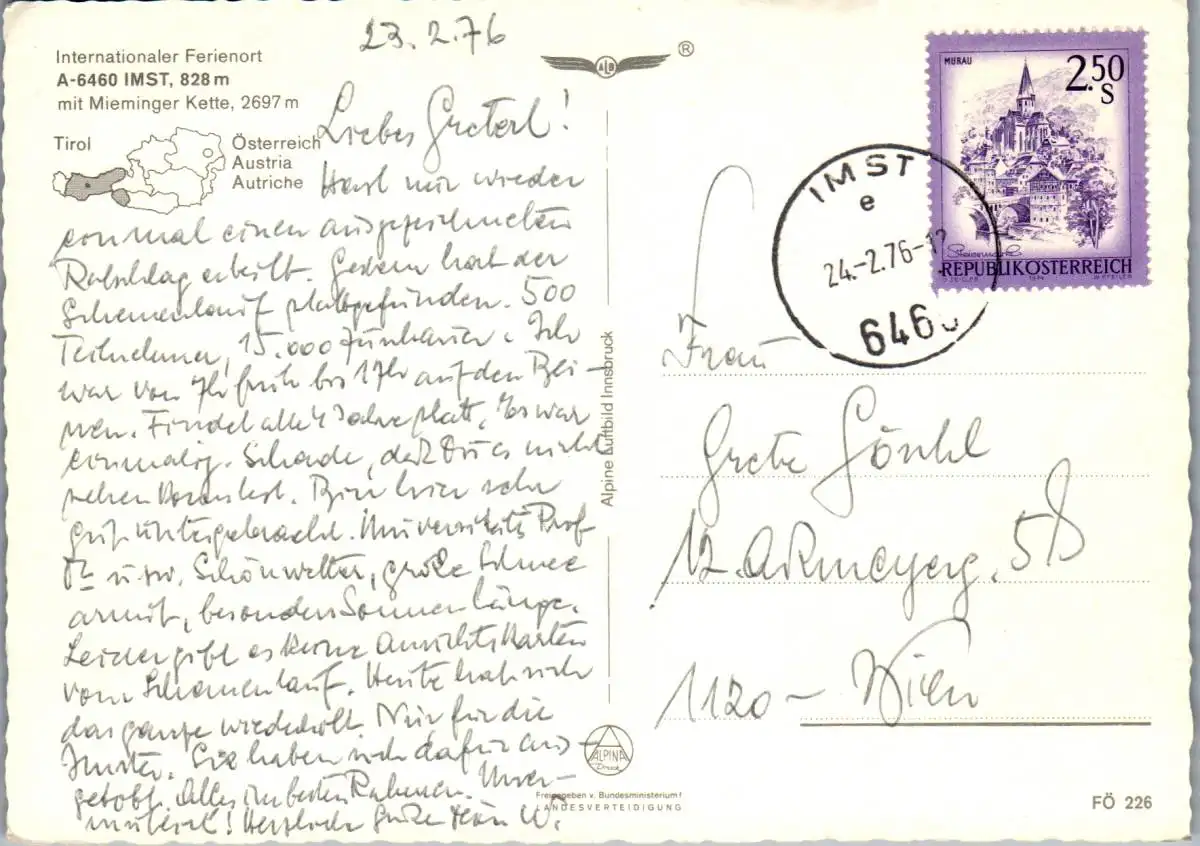 23.2.76
Internationaler Ferienort
A-6460 IMST, 828 m
mit Mieminger Kette, 2697 m
Tirol
Österreich
Austria
Autriche
ALB
®
Liebes Greterl!
Hast mir wieder
einmal einen ausgezeichneten
Ratschlag erteilt. Gestern hat der
Schemenlauf stattgefunden. 500
Teilnehmer, 15.000 Zuschauer. Ich
war von 7h früh bis 17h auf den Bei-
nen. Findet alle 4 Jahre statt, es war
einmalig. Schade, daß Du es nicht
sehen konntest. Bin hier sehr
gut untergebracht. Universitäts Prof
Dr usw. Schönwetter, große Schnee
armut, besonders Sonnenhänge.
Leider gibt es keine Ansichtskarten
vom Schemenlauf. Heute hat sich
das ganze wiederholt. Nur für die
Imster. Sie haben sich dafür aus-
getobt. Alles im besten Rahmen. Unver-
mutet! Herzliche Grüße Dein W.
Alpine Luftbild Innsbruck
ALPINA
Druck
Freigegeben v. Bundesministerium f
LANDESVERTEIDIGUNG
MURAU
2.50
S
Steiermark
REPUBLIK ÖSTERREICH
1974
IMST
e
24.-2.76-12
6460
Frau
Grete
12. 58
1120- Wien
FÖ 226